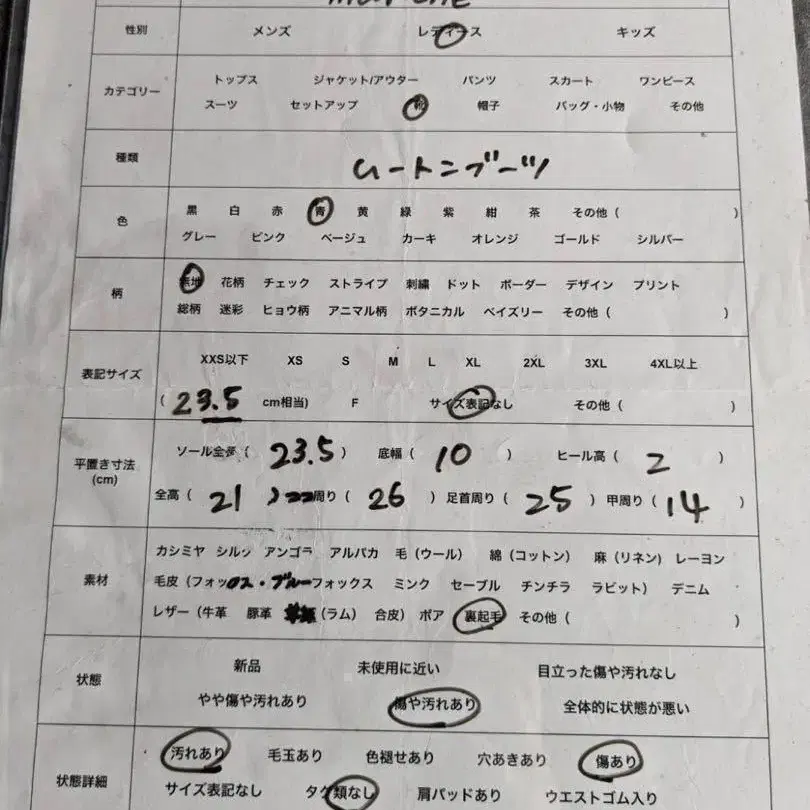 性別 メンズ レディース キッズ
カテゴリー
トップス ジャケット/アウター パンツ スカート ワンピース
スーツ セットアップ 靴 帽子 バッグ・小物 その他
種類 ムートンブーツ
色
黒 白 赤 青 黄 緑 紫 紺 茶 その他 ( )
グレー ピンク ベージュ カーキ オレンジ ゴールド シルバー
柄
無地 花柄 チェック ストライプ 刺繍 ドット ボーダー デザイン プリント
総柄 迷彩 ヒョウ柄 アニマル柄 ボタニカル ペイズリー その他 ( )
表記サイズ
XXS以下 XS S M L XL 2XL 3XL 4XL以上
( 23.5 cm相当) F サイズ表記なし その他 ( )
平置き寸法
(cm)
ソール全長 ( 23.5 ) 底幅 ( 10 ) ヒール高 ( 2 )
全高 ( 21 ) 周り ( 26 ) 足首周り ( 25 ) 甲周り ( 14 )
素材
カシミヤ シルク アンゴラ アルパカ 毛 (ウール) 綿 (コットン) 麻 (リネン) レーヨン
毛皮 (フォックス・ブルーフォックス ミンク セーブル チンチラ ラビット) デニム
レザー (牛革 豚革 (ラム) 合皮) ボア 裏起毛 その他 ( )
状態
新品 未使用に近い 目立った傷や汚れなし
やや傷や汚れあり 傷や汚れあり 全体的に状態が悪い
状態詳細
汚れあり 毛玉あり 色褪せあり 穴あきあり 傷あり
サイズ表記なし タグ類なし 肩パッドあり ウエストゴム入り